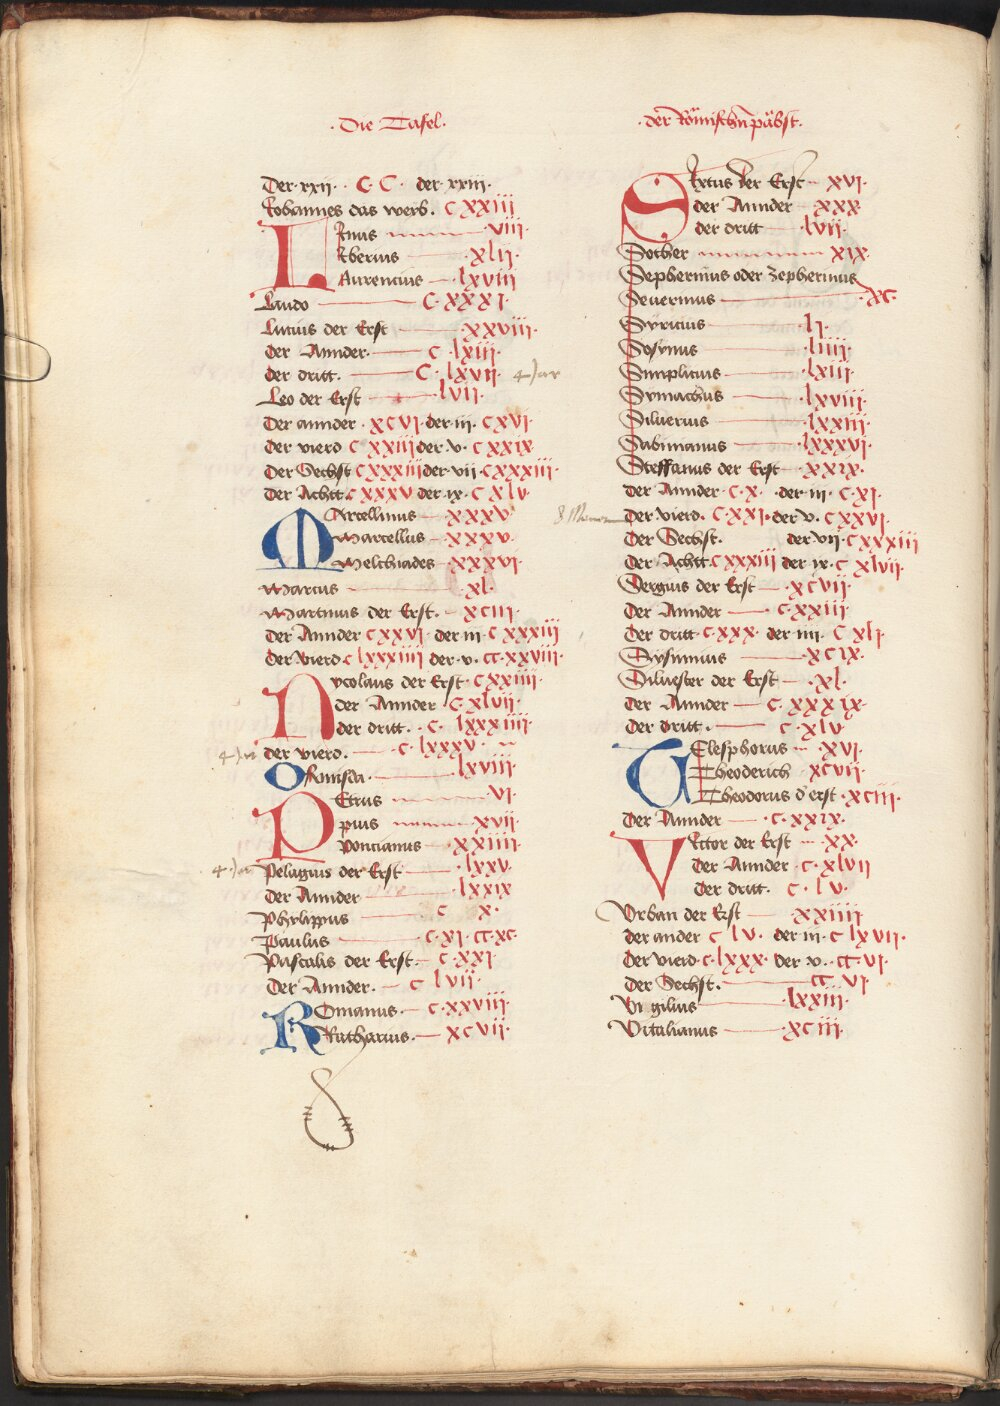 ·Die Tafel·
Der·xxii· ·C·C· der·xxiii·
Johannes das weib· C xxiii
Linus ·viii·
Liberius ·xlii·
Laurencius ·lxviii
Lando C·xxxi·
Lucius der Erst ·xxviii·
Der Annder· C ·lxiii·
der dritt· C·lxvii·
Leo der Erst ·lvii·
Der annder ·xcvi·der·iii· C xvi·
der vierd C xxiii der·v· C xxix
Der Sechst C xxxiii der·vii·C xxxiii·
der Achtt C xxxv der·ix· C xlv·
Marcellinus ·xxxv·
Marcellus ·xxxv·
Melchiades ·xxxvi·
Marcus ·xl·
Martinus der Erst· ·xciii·
Der Annder C xxvi· der·iii·C xxxiii
Der vierd·C lxxxiiii der·v· CC·xxviii·
Nycolaus der Erst·C xxiiii·
der Annder ·C·xlvii·
der dritt·C· lxxxiiii·
der vierd· C·lxxxv·
Ormisda· ·lxviii·
Petrus ·vi·
Pius ·xvii·
Poncianus ·xxiiii·
Pelagius der Erst ·lxxv·
Der Annder ·lxxix
Phylippus C x·
Paulus C·xi·CC·xc·
Pascalis der Erst· C·xxi·
Der Annder· C lvii·
Romanus· C·xxviii·
Rutharius· ·xcvii·
·der Römischn päbst·
Sixtus der Erst ·xvi·
der Annder ·xxx
der dritt ·lvii·
Sother ·xix·
Sepherinus oder Zepherinus
Seuerinus ·xc·
Syricius ·li·
Sosymus ·liiii·
Simplicius ·lxiii·
Symachus ·lxviii·
Siluerius ·lxxiii·
Sabinianus ·lxxxvi·
Steffanus der Erst ·xxix·
Der Annder·C·x· ·der·iii·C·xi·
Der vierd· C·xxi·der·v· C xxvi·
Der Sechst· der vii·C xxxiii
Der Achtt·C xxxiii der·ix·C xlvii·
Sergius der Erst ·xcvii·
Der Annder C·xxiii·
Der dritt·C·xxx· der·iiii· C xli·
Sysinnius ·xcix·
Siluester der Erst ·xl·
Der Annder C·xxxix·
Der dritt· C·xlv·
Telesphorus ·xvi·
Theoderich ·xcvii·
Theodorus d' erst·xciii·
Der Annder ·C·xxix·
Victor der Erst ·xx·
Der Annder·C·xlvii
Der dritt· C·lv·
Vrban der Erst ·xxiiii
der ander C lv· der·iii·C lxvii·
Der vierd·C·lxxx· der·v· CC·vi·
Der Sechst· CC·vi·
Virgilius ·lxxiii·
Vitalianus ·xciii·